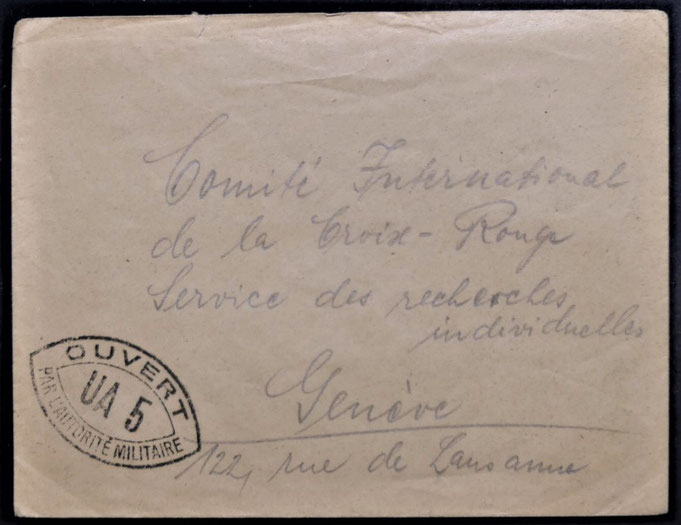 Comité International
de la Croix-Rouge
Service des recherches
individuelles
Genève
122, rue de Lausanne
OUVERT
UA 5
PAR L'AUTORITÉ MILITAIRE